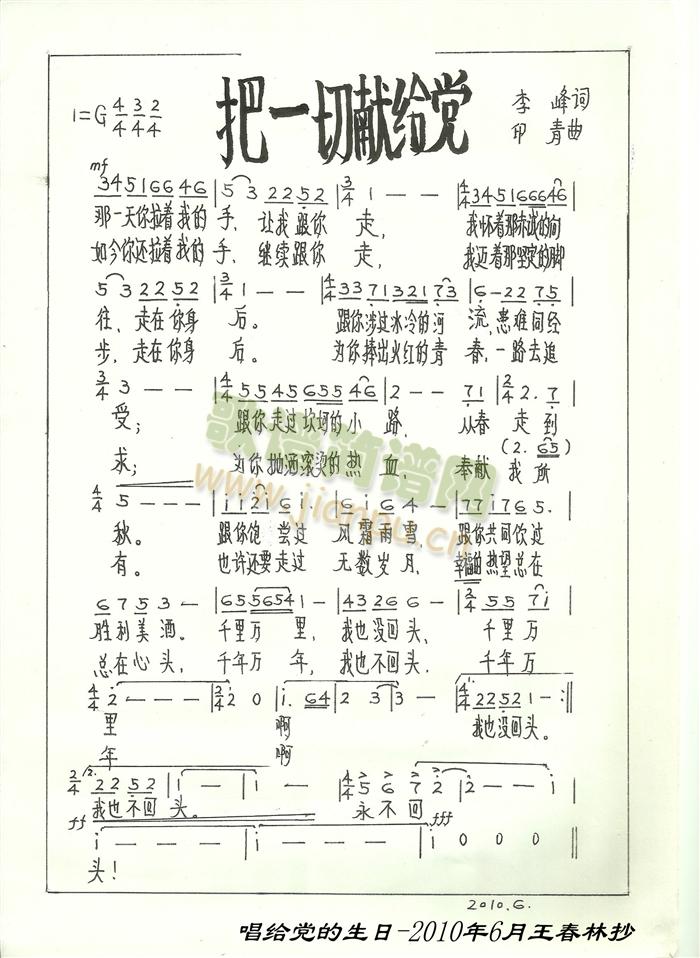 把一切献给党
1=G 4/4 3/4 2/4
李峰词
印青曲
mf
3451 66 46 | 5 3 22 52 | 3/4 1 - - | 4/4 3451 666 46 |
那一天你拉着我的手，让我跟你走，我怀着那赤诚的向
如今你还拉着我的手，继续跟你走，我迈着那坚定的脚
5 3 22 52 | 3/4 1 - - | 4/4 33 71 321 73 | 6 - 22 75 |
往，走在你身后。跟你涉过冰冷的河流，患难同经
步，走在你身后。为你捧出火红的青春，一路去追
3/4 3 - - | 4/4 55 45 655 46 | 2 - - 71 | 2/4 2. 7 |
受；跟你走过坎坷的小路，从春走到
(2. 65)
求；为你抛洒滚烫的热血，奉献我所
4/4 5 - - - | i i 2 6 i | 6 i 6 4 - | 77 i76 5. |
秋。跟你饱尝过风霜雨雪，跟你共同饮过
有。也许还要走过无数岁月，幸福的热望总在
6 7 5 3 - | 65 5654 1 - | 43 26 6 - | 2/4 55 7i |
胜利美酒。千里万里，我也没回头，千里万
总在心头，千年万年，我也不回头．千年万
4/4 2 - - - | 2/4 2 0 | i. 64 | 2 3 | 3 - | 4/4 22 52 1 - :‖
里啊我也没回头。
年啊
2/4 2. 22 52 | i - | i - | 4/4 5 6 7 2 | 2 - - i |
我也不回头。永不回
ff fff
i - - - | i - - - | i 0 0 0 ‖
头！
歌谱简谱网
www.jianpu.cn
2010.6.
唱给党的生日-2010年6月王春林抄